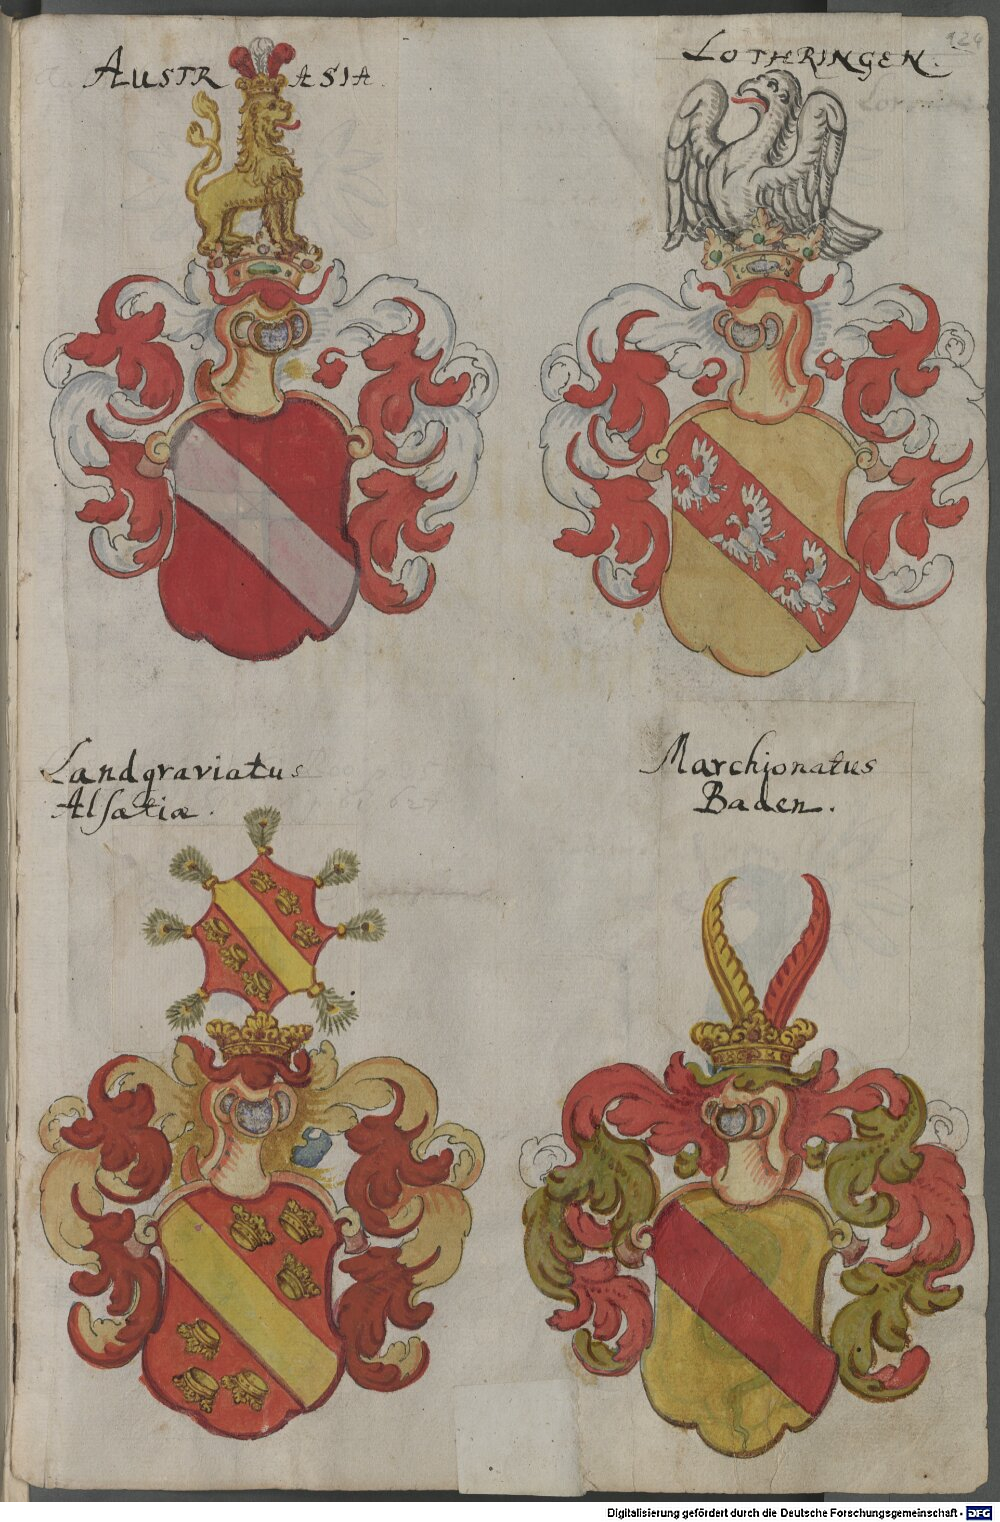 AUSTR ASIA.
LOTHRINGEN.
124
Landgraviatus
Alsatiæ.
Marchionatus
Baden.
Digitalisierung gefördert durch die Deutsche Forschungsgemeinschaft - DFG